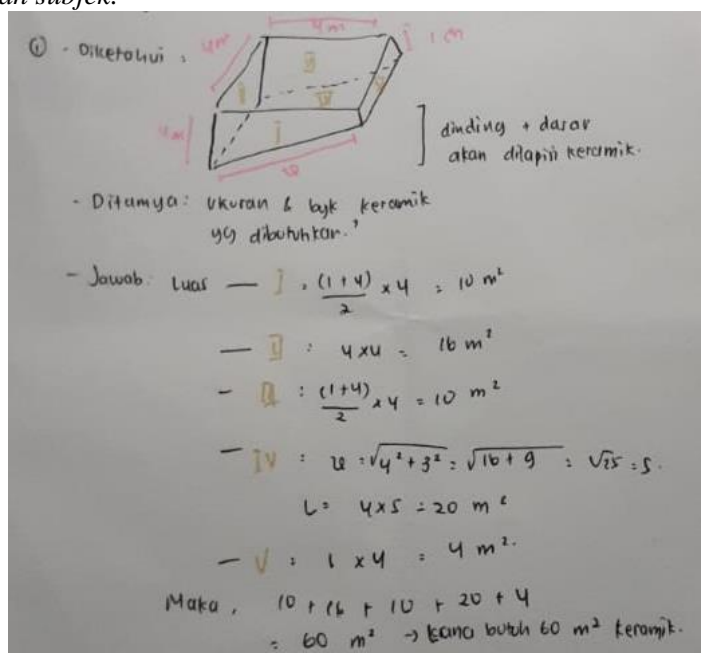 an subjek.
① - Diketahui :
4m
4m
1 m
4m
II
I
IV
V
I
u
dinding + dasar
akan dilapisi keramik.
- Ditanya : Ukuran & byk keramik
yg dibutuhkan?
- Jawab : Luas — I : (1+4)/2 x 4 = 10 m²
— II : 4x4 = 16 m²
- III : (1+4)/2 x 4 = 10 m²
- IV : u = √4² + 3² = √16 + 9 = √25 = 5.
L = 4x5 = 20 m²
- V : 1 x 4 = 4 m².
Maka, 10 + 16 + 10 + 20 + 4
= 60 m² → butuh 60 m² keramik.